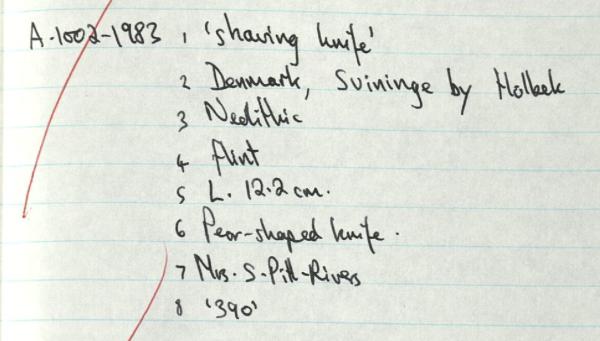 A.1002-1983 1 'shaving knife'
2 Denmark, Svininge by Holbek
3 Neolithic
4 flint
5 L. 12.2 cm.
6 Pear-shaped knife.
7 Mrs. S. Pitt-Rivers
8 '390'